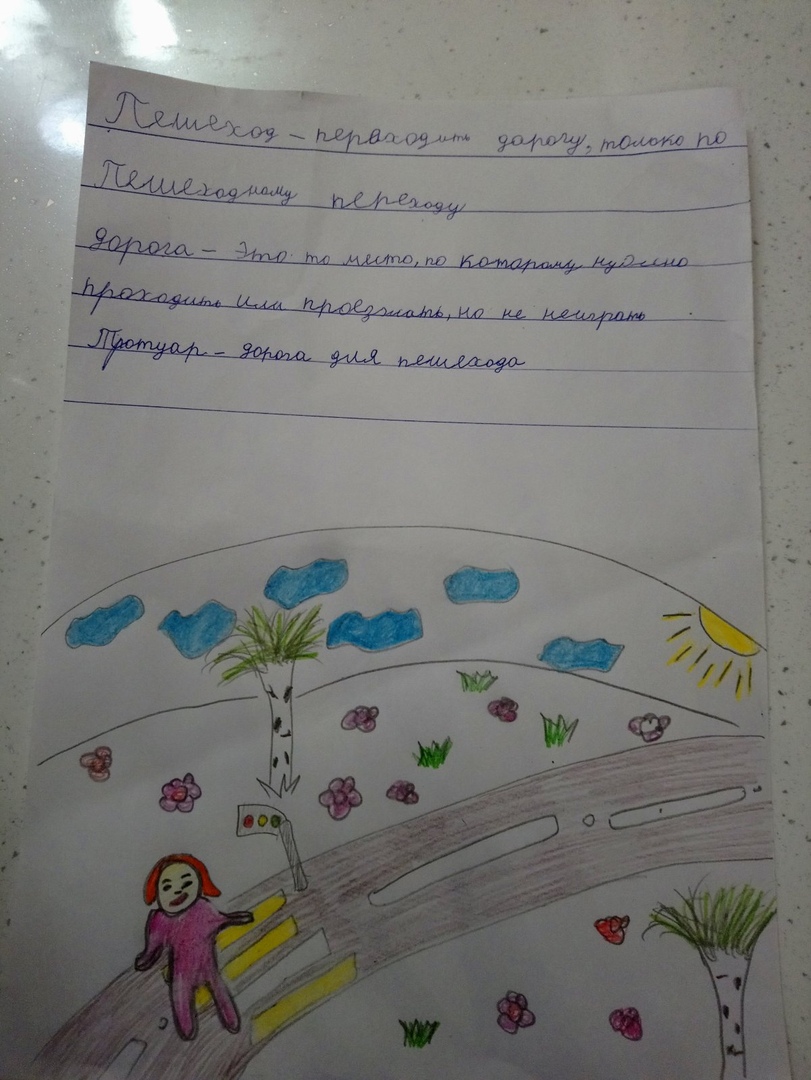 Пешеход – перваходить дорогу, только по
Пешеходному переходу
дорога – Это то место, по которому нужно
проходить или проезжать, но не неиграть
Тротуар – дорога для пешехода